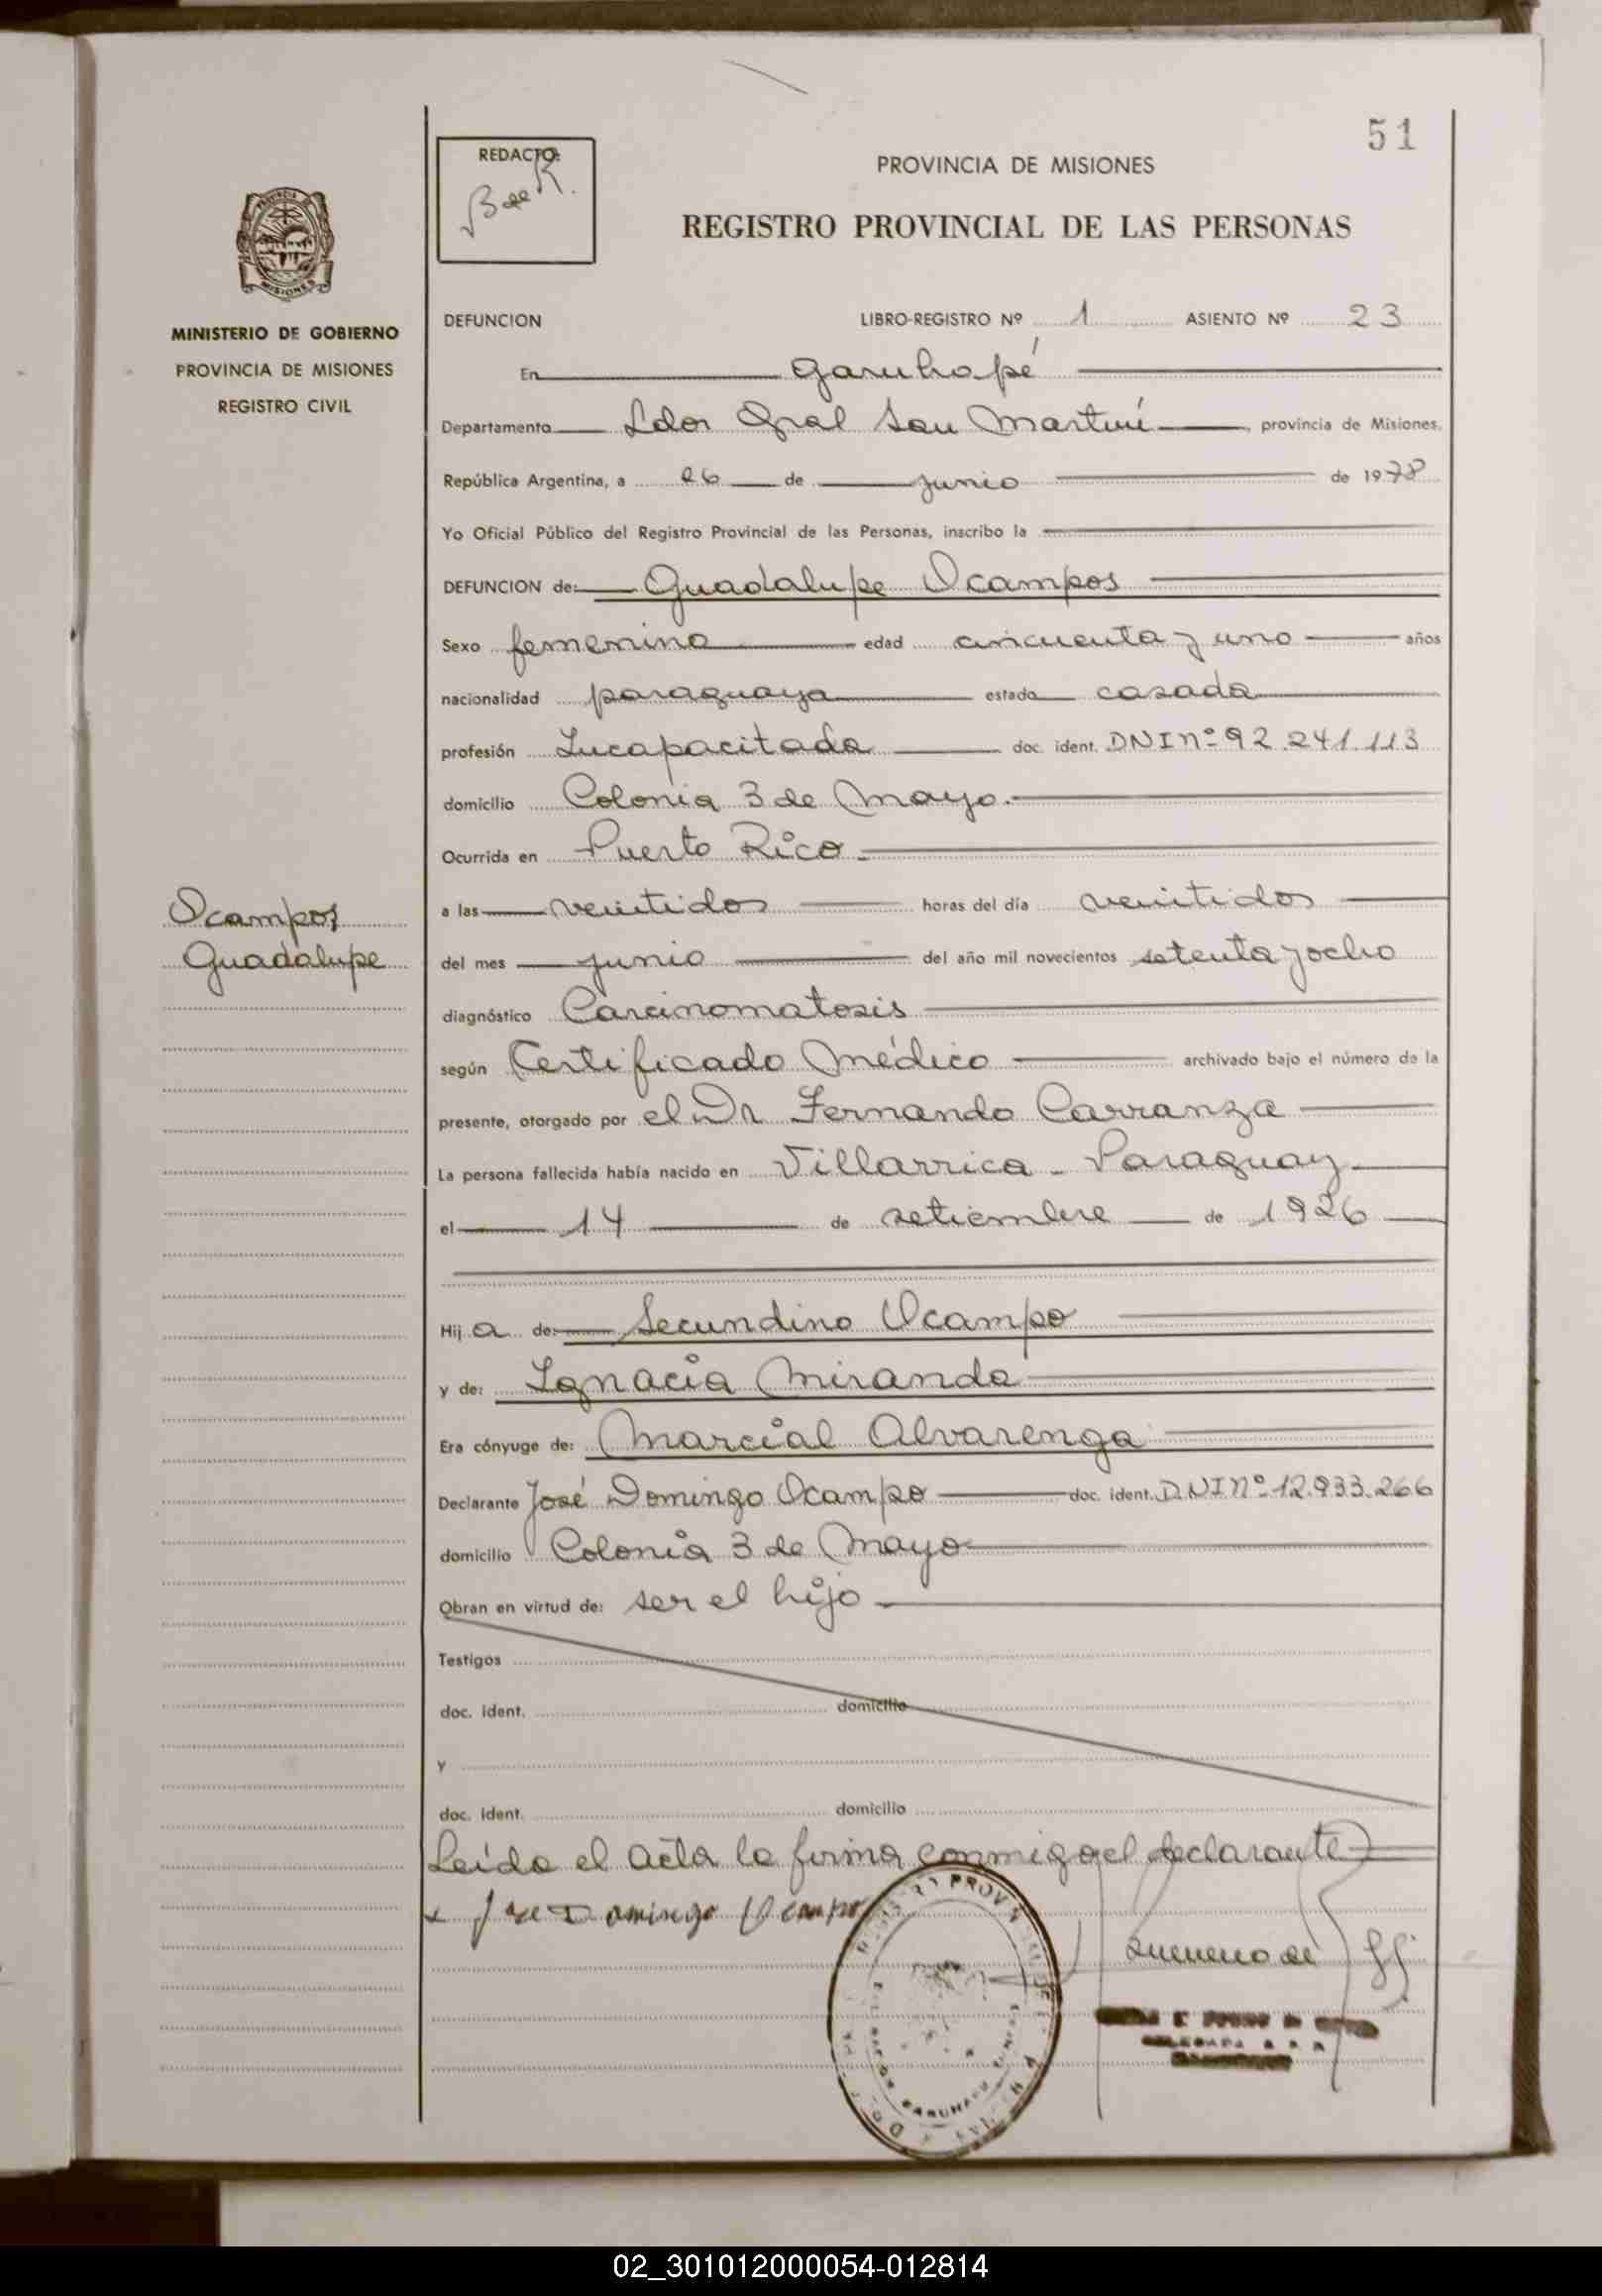 51
REDACTO:
PROVINCIA DE MISIONES
REGISTRO PROVINCIAL DE LAS PERSONAS
MISIONES
MINISTERIO DE GOBIERNO
PROVINCIA DE MISIONES
REGISTRO CIVIL
DEFUNCION LIBRO-REGISTRO Nº 1 ASIENTO Nº 23
En Garuhapé
Departamento Ldor Gral San Martín, provincia de Misiones,
República Argentina, a 26 de junio de 1978
Yo Oficial Público del Registro Provincial de las Personas, inscribo la
DEFUNCION de: Guadalupe Ocampos
Sexo femenino edad cincuenta y uno años
nacionalidad paraguaya estado casada
profesión Incapacitada doc. ident. DNI nº 92.241.113
domicilio Colonia 3 de Mayo.
Ocurrida en Puerto Rico
a las veintidos horas del día veintidos
Ocampos
Guadalupe
del mes junio del año mil novecientos setenta y ocho
diagnóstico Carcinomatosis
según Certificado Médico archivado bajo el número de la
presente, otorgado por el Dr Fernando Carranza
La persona fallecida había nacido en Villarrica - Paraguay
el 14 de setiembre de 1926
Hij a de: Secundino Ocampo
y de: Ignacia Miranda
Era cónyuge de: Marcial Alvarenga
Declarante José Domingo Ocampo doc. ident. DNI Nº 12.933.266
domicilio Colonia 3 de Mayo
Obran en virtud de: ser el hijo
Testigos
doc. ident. domicilio
y
doc. ident. domicilio
Leída el acta la firma conmigo el declarante
Jose Domingo Ocampo
02_301012000054-012814